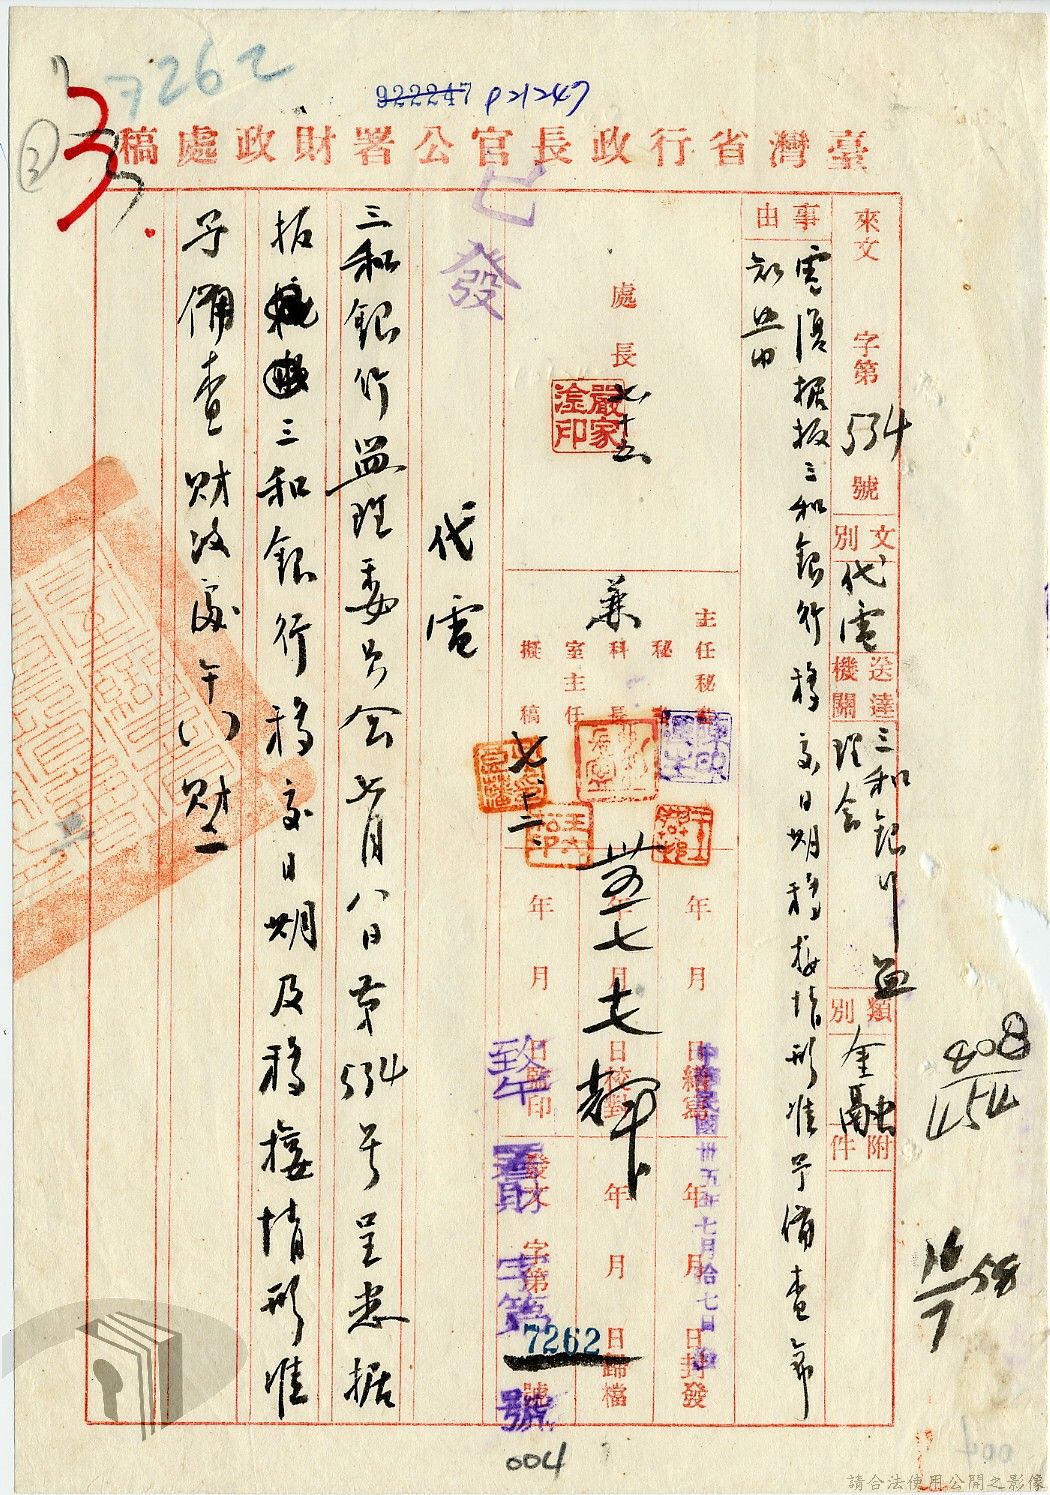 7262
922247 P21247
臺灣省行政長官公署財政處稿
已發
來文 字第 534 號
文別 代電
送達機關 三和銀行監理會
類別 金融
附件
事由
電復據報三和銀行移交日期移接情形准予備查希
知照由
處長 七、十五
嚴家淦印
主任秘書
秘書
科長
室主任
擬稿 七、十二、
兼
年 月 日繕寫
年 月 日校對
年 月 日監印
年 月 日封發
年 月 日歸檔
發文 字第 號
中華民國卅五年七月拾七日
致午 署財字第 7262 號
代電
三和銀行監理委員會七月八日第534号呈悉據
報三和銀行移交日期及移接情形准
予備查財政處午()财一
808
454
16/7 58
004
請合法使用公開之影像